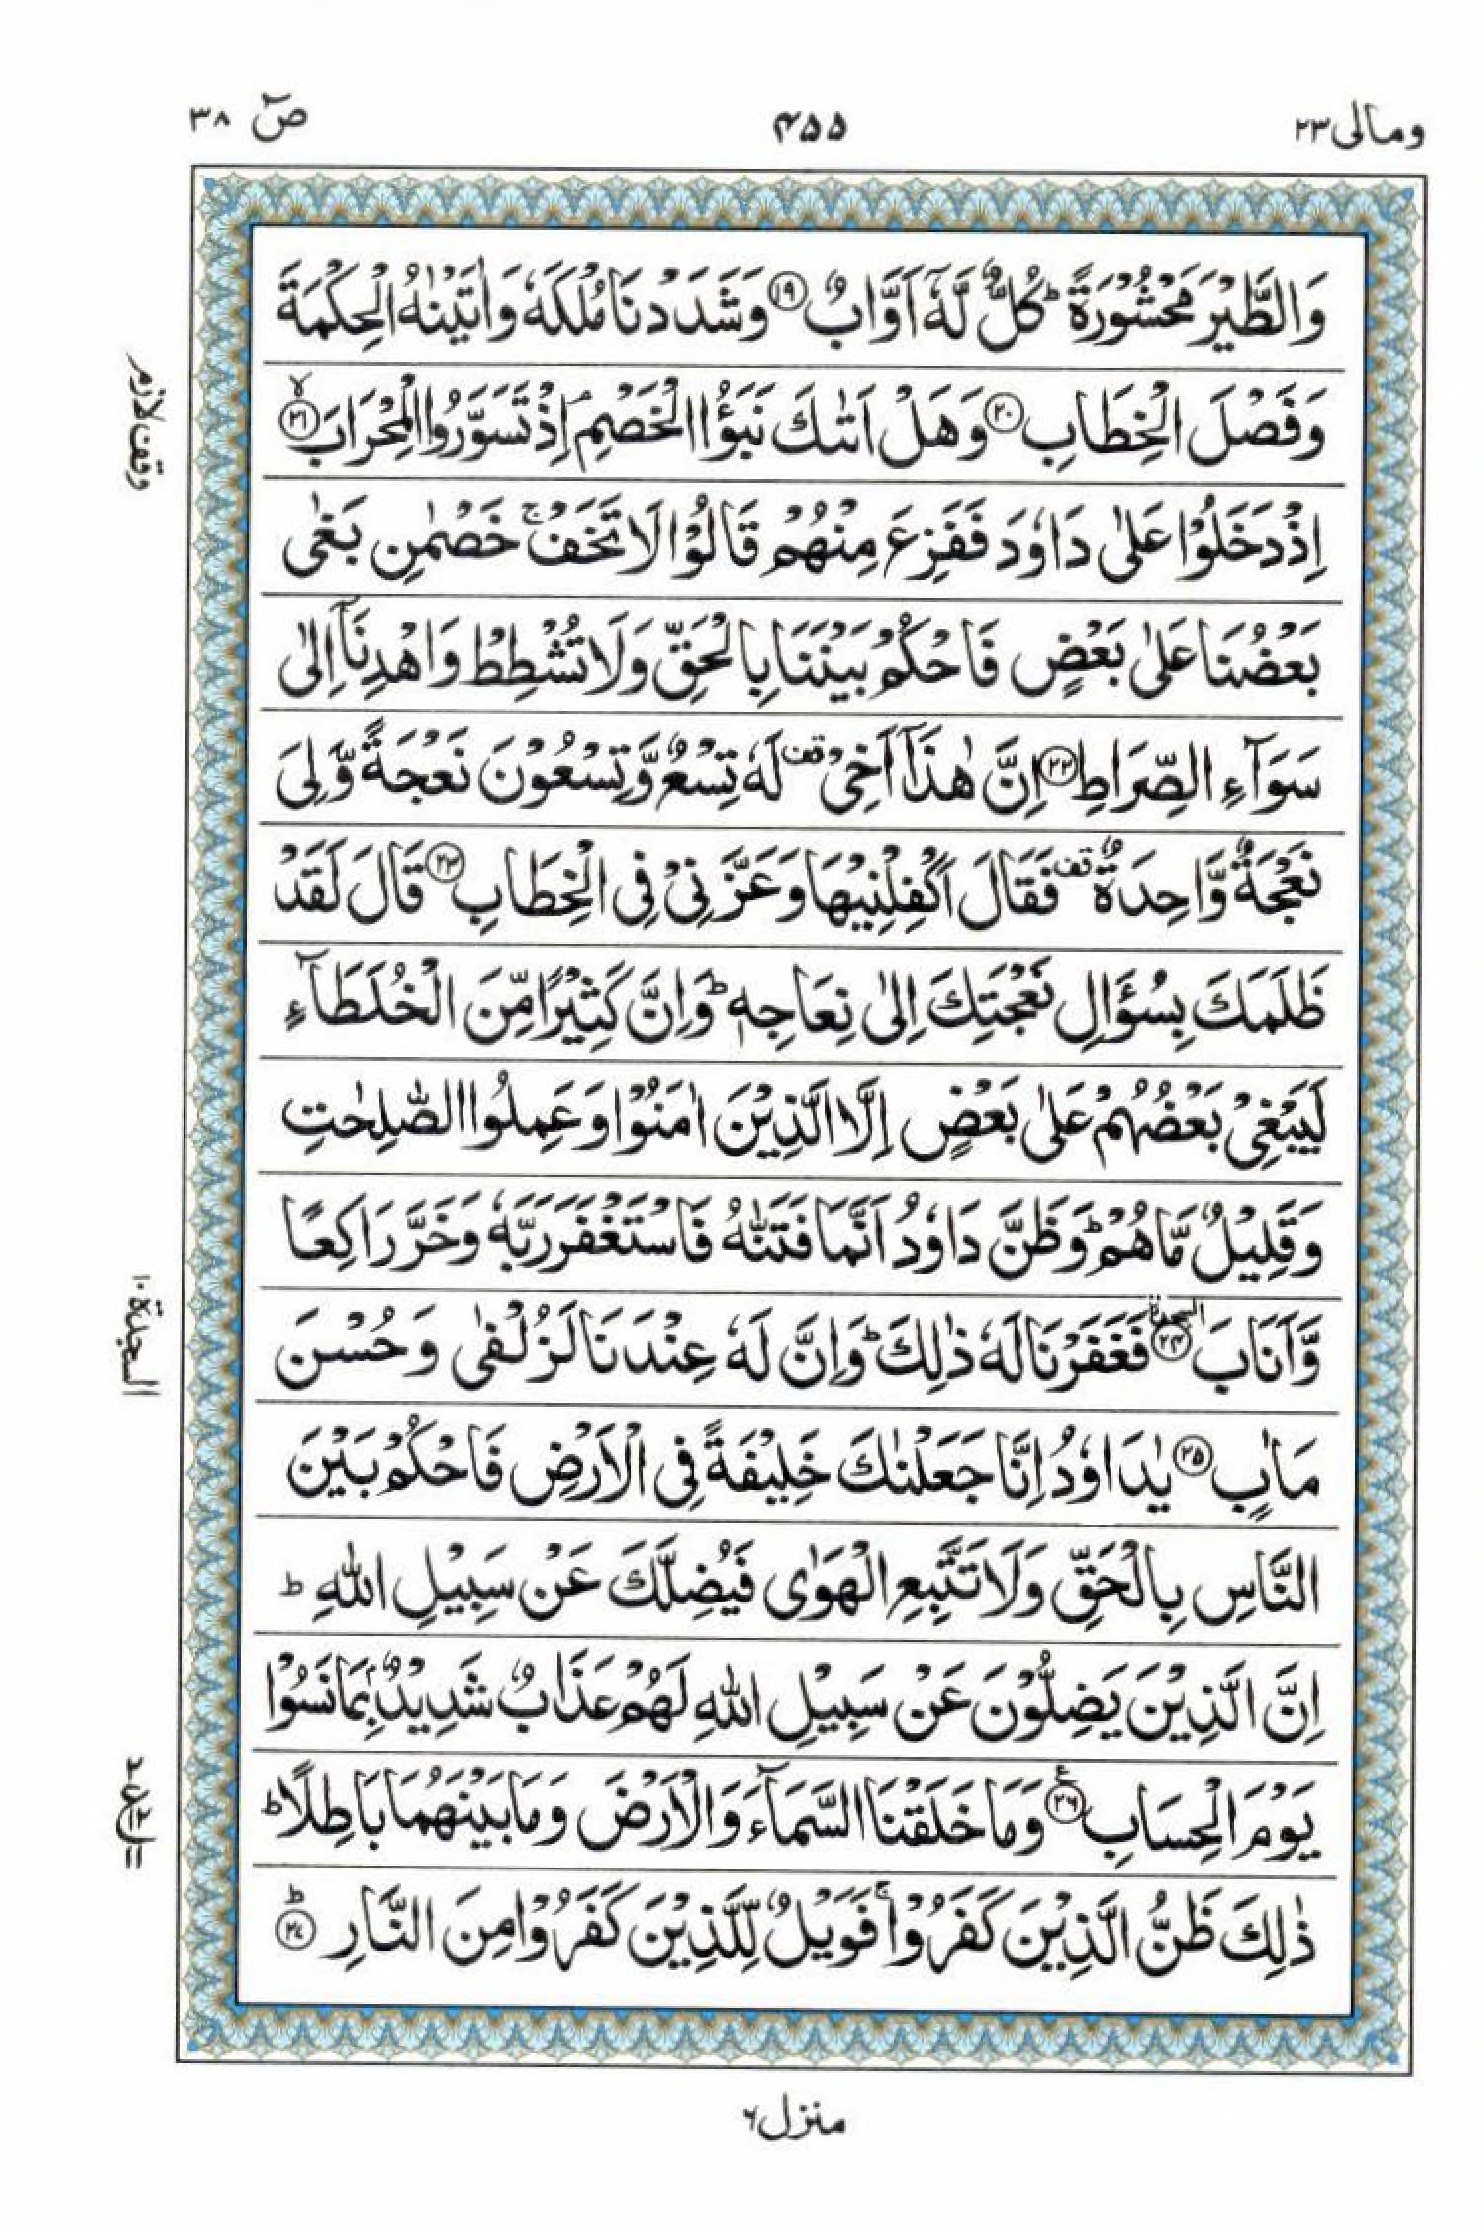 ومالی ۲۳
۴۵۵
صٓ ۳۸
وَالطَّيْرَ مَحْشُوْرَةً ؕ كُلٌّ لَّهٗۤ اَوَّابٌ ⑲ وَشَدَدْنَا مُلْكَهٗ وَاٰتَيْنٰهُ الْحِكْمَةَ
وَفَصْلَ الْخِطَابِ ⑳ وَهَلْ اَتٰىكَ نَبَؤُا الْخَصْمِ ۘ اِذْ تَسَوَّرُوا الْمِحْرَابَ ۙ ㉑
وقف لازم
اِذْ دَخَلُوْا عَلٰى دَاوٗدَ فَفَزِعَ مِنْهُمْ قَالُوْا لَا تَخَفْ ۚ خَصْمٰنِ بَغٰى
بَعْضُنَا عَلٰى بَعْضٍ فَاحْكُمْ بَيْنَنَا بِالْحَقِّ وَلَا تُشْطِطْ وَاهْدِنَاۤ اِلٰى
سَوَآءِ الصِّرَاطِ ㉒ اِنَّ هٰذَاۤ اَخِيْ قف لَهٗ تِسْعٌ وَّتِسْعُوْنَ نَعْجَةً وَّلِيَ
نَعْجَةٌ وَّاحِدَةٌ قف فَقَالَ اَكْفِلْنِيْهَا وَعَزَّنِيْ فِي الْخِطَابِ ㉓ قَالَ لَقَدْ
ظَلَمَكَ بِسُؤَالِ نَعْجَتِكَ اِلٰى نِعَاجِهٖ ؕ وَاِنَّ كَثِيْرًا مِّنَ الْخُلَطَآءِ
لَيَبْغِيْ بَعْضُهُمْ عَلٰى بَعْضٍ اِلَّا الَّذِيْنَ اٰمَنُوْا وَعَمِلُوا الصّٰلِحٰتِ
وَقَلِيْلٌ مَّا هُمْ ؕ وَظَنَّ دَاوٗدُ اَنَّمَا فَتَنّٰهُ فَاسْتَغْفَرَ رَبَّهٗ وَخَرَّ رَاكِعًا
وَّاَنَابَ السجدة ㉔ فَغَفَرْنَا لَهٗ ذٰلِكَ ؕ وَاِنَّ لَهٗ عِنْدَنَا لَزُلْفٰى وَحُسْنَ
السجدة ۱۰
مَاٰبٍ ㉕ يٰدَاوٗدُ اِنَّا جَعَلْنٰكَ خَلِيْفَةً فِي الْاَرْضِ فَاحْكُمْ بَيْنَ
النَّاسِ بِالْحَقِّ وَلَا تَتَّبِعِ الْهَوٰى فَيُضِلَّكَ عَنْ سَبِيْلِ اللّٰهِ ؕ
اِنَّ الَّذِيْنَ يَضِلُّوْنَ عَنْ سَبِيْلِ اللّٰهِ لَهُمْ عَذَابٌ شَدِيْدٌۢ بِمَا نَسُوْا
يَوْمَ الْحِسَابِ ع ㉖ وَمَا خَلَقْنَا السَّمَآءَ وَالْاَرْضَ وَمَا بَيْنَهُمَا بَاطِلًا ؕ
ذٰلِكَ ظَنُّ الَّذِيْنَ كَفَرُوْا ۚ فَوَيْلٌ لِّلَّذِيْنَ كَفَرُوْا مِنَ النَّارِ ؕ ㉗
منزل ۶